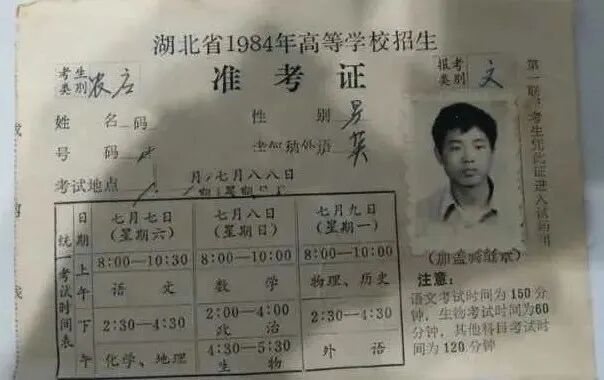 湖北省1984年高等学校招生
准考证
考生类别 农应
报考类别 文
姓名 码
性别 男
号码
英
考试地点
月 七月八八日
第一联：考生凭此证进入试场用
统一考试时间表
日期 七月七日(星期六) 七月八日(星期日) 七月九日(星期一)
上午 8:00—10:30 8:00—10:00 8:00—10:00
语文 数学 物理、历史
下午 2:30—4:30 2:00—4:00 2:30—4:30
政治
化学、地理 4:30—5:30 外语
生物
(加盖骑缝章)
注意：
语文考试时间为150分
钟，生物考试时间为60
分钟，其他科目考试时
间为120分钟